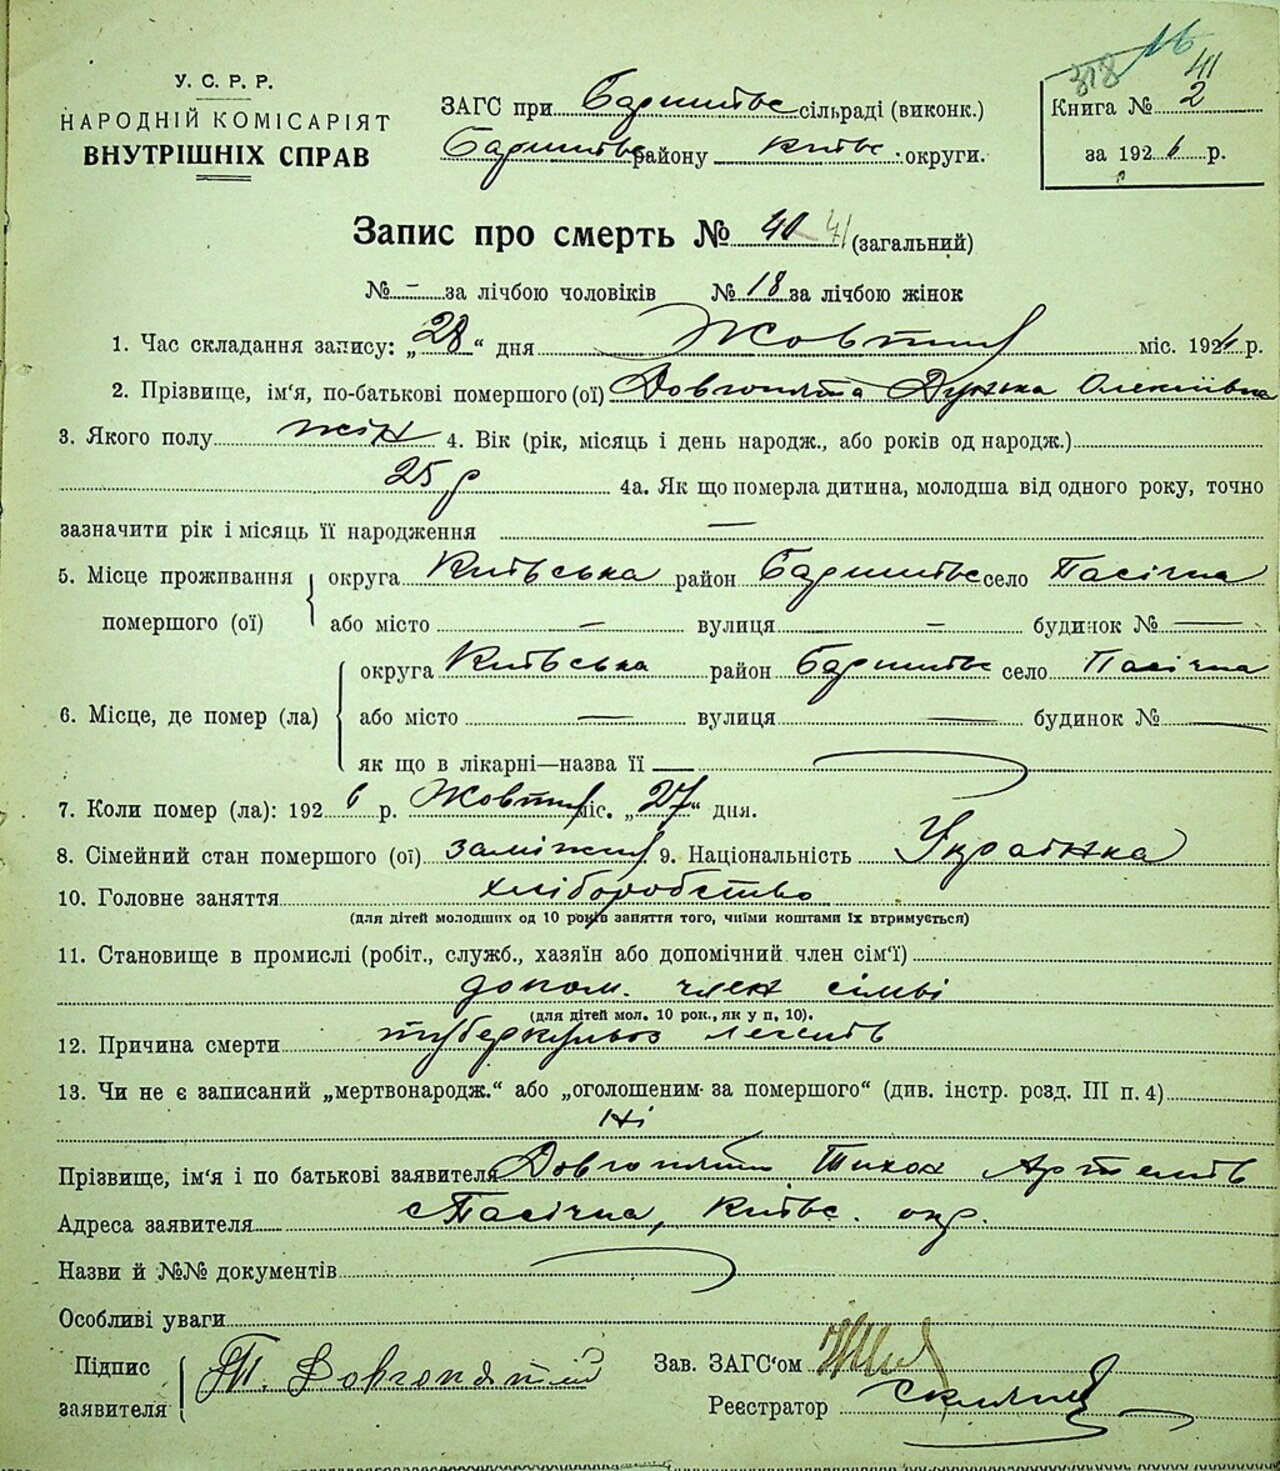 16
318 41
У. С. Р. Р.
НАРОДНІЙ КОМІСАРІЯТ
ВНУТРІШНІХ СПРАВ
ЗАГС при Баришівс сільраді (виконк.)
Баришівс району Київс округи.
Книга № 2
за 1926 р.
Запис про смерть № 40 41 (загальний)
№ - за лічбою чоловіків № 18 за лічбою жінок
1. Час складання запису: „28“ дня Жовтня міс. 1926 р.
2. Прізвище, ім‘я, по-батькові помершого (ої) Довгопята Дунька Олексіївна
3. Якого полу жін 4. Вік (рік, місяць і день народж., або років од народж.)
25 р 4а. Як що померла дитина, молодша від одного року, точно
зазначити рік і місяць її народження —
5. Місце проживання округа Київська район Баришівс село Пасічна
помершого (ої) або місто — вулиця — будинок № —
округа Київська район Баришівс село Пасічна
6. Місце, де помер (ла) або місто — вулиця — будинок № —
як що в лікарні—назва її
7. Коли помер (ла): 1926 р. Жовтня міс. „27“ дня.
8. Сімейний стан помершого (ої) заміжня 9. Національність Українка
10. Головне заняття хліборобство
(для дітей молодших од 10 років заняття того, чиїми коштами їх втримується)
11. Становище в промислі (робіт., служб., хазяїн або допомічний член сім‘ї)
допом. член сімьі
(для дітей мол. 10 рок., як у п. 10).
12. Причина смерти туберкульоз легенів
13. Чи не є записаний „мертвонародж.“ або „оголошеним за помершого“ (див. інстр. розд. III п. 4)
Ні
Прізвище, ім‘я і по батькові заявителя Довгопятий Тихон Артемів
Адреса заявителя с Пасічна, Київс. окр.
Назви й №№ документів
Особливі уваги
Підпис Т. Довгопятий Зав. ЗАГС‘ом
заявителя Реєстратор